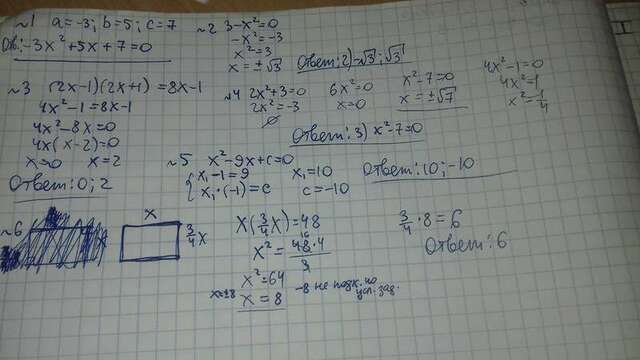 ~1 a=-3; b=5; c=7
Отв.: -3x²+5x+7=0
~2 3-x²=0
-x²=-3
x²=3
x=±√3
Ответ: 2) -√3; √3
~3 (2x-1)(2x+1)=8x-1
4x²-1=8x-1
4x²-8x=0
4x(x-2)=0
x=0 x=2
Ответ: 0; 2
~4 2x²+3=0
2x²=-3
∅
6x²=0
x=0
x²-7=0
x=±√7
4x²-1=0
4x²=1
x²=1/4
Ответ: 3) x²-7=0
~5 x²-9x+c=0
{x₁-1=9
x₁·(-1)=c
x₁=10
c=-10
Ответ: 10; -10
~6
x
3/4x
x(3/4x)=48
x²=48·4/3
16
x²=64
x=±8
x=8
-8 не подх. по
усл. зад.
3/4·8=6
Ответ: 6